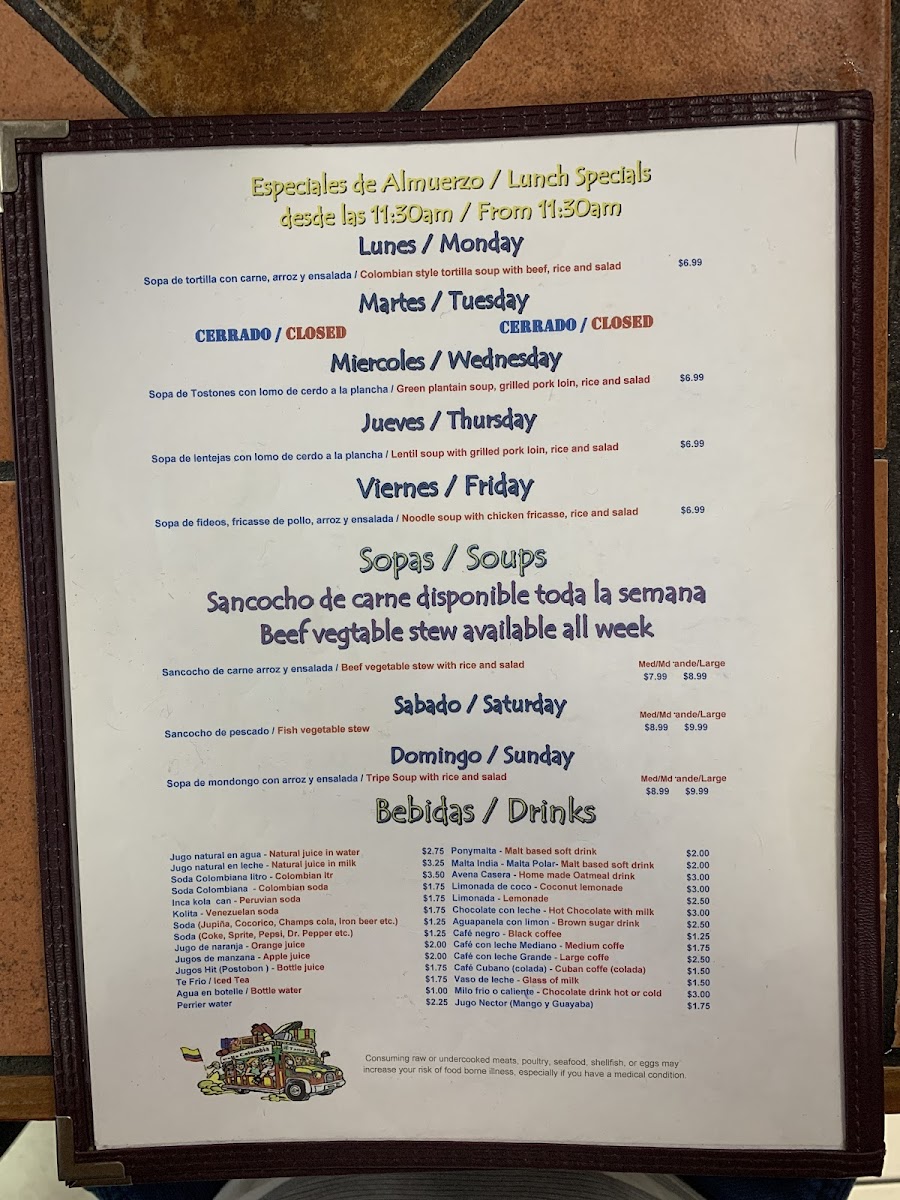 Especiales de Almuerzo / Lunch Specials
desde las 11:30am / From 11:30am
Lunes / Monday
Sopa de tortilla con carne, arroz y ensalada / Colombian style tortilla soup with beef, rice and salad $6.99
Martes / Tuesday
CERRADO / CLOSED CERRADO / CLOSED
Miercoles / Wednesday
Sopa de Tostones con lomo de cerdo a la plancha / Green plantain soup, grilled pork loin, rice and salad $6.99
Jueves / Thursday
Sopa de lentejas con lomo de cerdo a la plancha / Lentil soup with grilled pork loin, rice and salad $6.99
Viernes / Friday
Sopa de fideos, fricasse de pollo, arroz y ensalada / Noodle soup with chicken fricasse, rice and salad $6.99
Sopas / Soups
Sancocho de carne disponible toda la semana
Beef vegtable stew available all week
Sancocho de carne arroz y ensalada / Beef vegetable stew with rice and salad Med/Md ande/Large
$7.99 $8.99
Sabado / Saturday
Sancocho de pescado / Fish vegetable stew Med/Md ande/Large
$8.99 $9.99
Domingo / Sunday
Sopa de mondongo con arroz y ensalada / Tripe Soup with rice and salad Med/Md ande/Large
$8.99 $9.99
Bebidas / Drinks
Jugo natural en agua - Natural juice in water $2.75
Jugo natural en leche - Natural juice in milk $3.25
Soda Colombiana litro - Colombian ltr $3.50
Soda Colombiana - Colombian soda $1.75
Inca kola can - Peruvian soda $1.75
Kolita - Venezuelan soda $1.75
Soda (Jupiña, Cocorico, Champs cola, Iron beer etc.) $1.25
Soda (Coke, Sprite, Pepsi, Dr. Pepper etc.) $1.25
Jugo de naranja - Orange juice $2.00
Jugos de manzana - Apple juice $2.00
Jugos Hit (Postobon ) - Bottle juice $1.75
Te Frio / Iced Tea $1.75
Agua en botelle / Bottle water $1.00
Perrier water $2.25
Ponymalta - Malt based soft drink $2.00
Malta India - Malta Polar- Malt based soft drink $2.00
Avena Casera - Home made Oatmeal drink $3.00
Limonada de coco - Coconut lemonade $3.00
Limonada - Lemonade $2.50
Chocolate con leche - Hot Chocolate with milk $3.00
Aguapanela con limon - Brown sugar drink $2.50
Café negro - Black coffee $1.25
Café con leche Mediano - Medium coffe $1.75
Café con leche Grande - Large coffe $2.50
Café Cubano (colada) - Cuban coffe (colada) $1.50
Vaso de leche - Glass of milk $1.50
Milo frio o caliente - Chocolate drink hot or cold $3.00
Jugo Nector (Mango y Guayaba) $1.75
Consuming raw or undercooked meats, poultry, seafood, shellfish, or eggs may
increase your risk of food borne illness, especially if you have a medical condition.